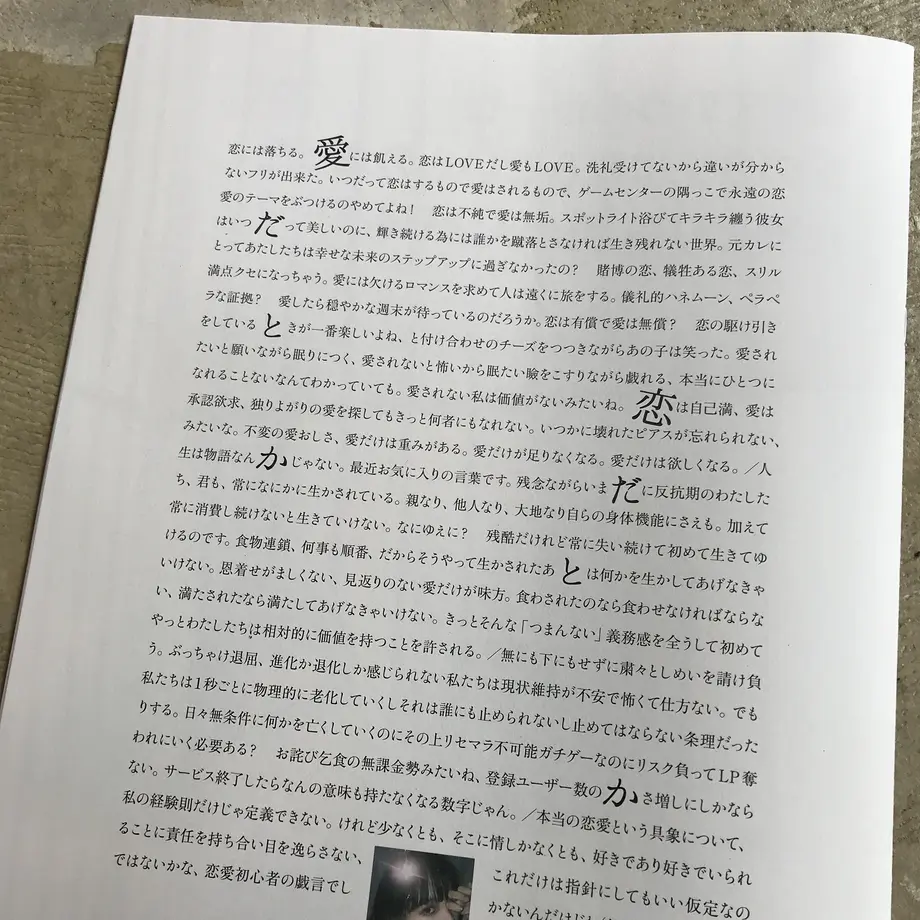 恋には落ちる。愛には飢える。恋はLOVEだし愛もLOVE。洗礼受けてないから違いが分から
ないフリが出来た。いつだって恋はするもので愛はされるもので、ゲームセンターの隅っこで永遠の恋
愛のテーマをぶつけるのやめてよね！　恋は不純で愛は無垢。スポットライト浴びてキラキラ纏う彼女
はいつだって美しいのに、輝き続ける為には誰かを蹴落とさなければ生き残れない世界。元カレに
とってあたしたちは幸せな未来のステップアップに過ぎなかったの？　賭博の恋、犠牲ある恋、スリル
満点クセになっちゃう。愛には欠けるロマンスを求めて人は遠くに旅をする。儀礼的ハネムーン、ペラペ
ラな証拠？　愛したら穏やかな週末が待っているのだろうか。恋は有償で愛は無償？　恋の駆け引き
をしているときが一番楽しいよね、と付け合わせのチーズをつつきながらあの子は笑った。愛され
たいと願いながら眠りにつく、愛されないと怖いから眠たい瞼をこすりながら戯れる、本当にひとつに
なれることないなんてわかっていても。愛されない私は価値がないみたいね。恋は自己満、愛は
承認欲求、独りよがりの愛を探してもきっと何者にもなれない。いつかに壊れたピアスが忘れられない、
みたいな。不変の愛おしさ、愛だけは重みがある。愛だけが足りなくなる。愛だけは欲しくなる。／人
生は物語なんかじゃない。最近お気に入りの言葉です。残念ながらいまだに反抗期のわたした
ち、君も、常になにかに生かされている。親なり、他人なり、大地なり自らの身体機能にさえも。加えて
常に消費し続けないと生きていけない。なにゆえに？　残酷だけれど常に失い続けて初めて生きてゆ
けるのです。食物連鎖、何事も順番、だからそうやって生かされたあとは何かを生かしてあげなきゃ
いけない。恩着せがましくない、見返りのない愛だけが味方。食わされたのなら食わせなければならな
い、満たされたなら満たしてあげなきゃいけない。きっとそんな「つまんない」義務感を全うして初めて
やっとわたしたちは相対的に価値を持つことを許される。／無にも下にもせずに粛々としめいを請け負
う。ぶっちゃけ退屈、進化か退化しか感じられない私たちは現状維持が不安で怖くて仕方ない。でも
私たちは1秒ごとに物理的に老化していくしそれは誰にも止められないし止めてはならない条理だった
りする。日々無条件に何かを亡くしていくのにその上リセマラ不可能ガチゲーなのにリスク負ってLP奪
われにいく必要ある？　お詫び乞食の無課金勢みたいね、登録ユーザー数のかさ増しにしかなら
ない。サービス終了したらなんの意味も持たなくなる数字じゃん。／本当の恋愛という具象について、
私の経験則だけじゃ定義できない。けれど少なくとも、そこに情しかなくとも、好きであり好きでいられ
ることに責任を持ち合い目を逸らさない、これだけは指針にしてもいい仮定なの
ではないかな、恋愛初心者の戯言でし